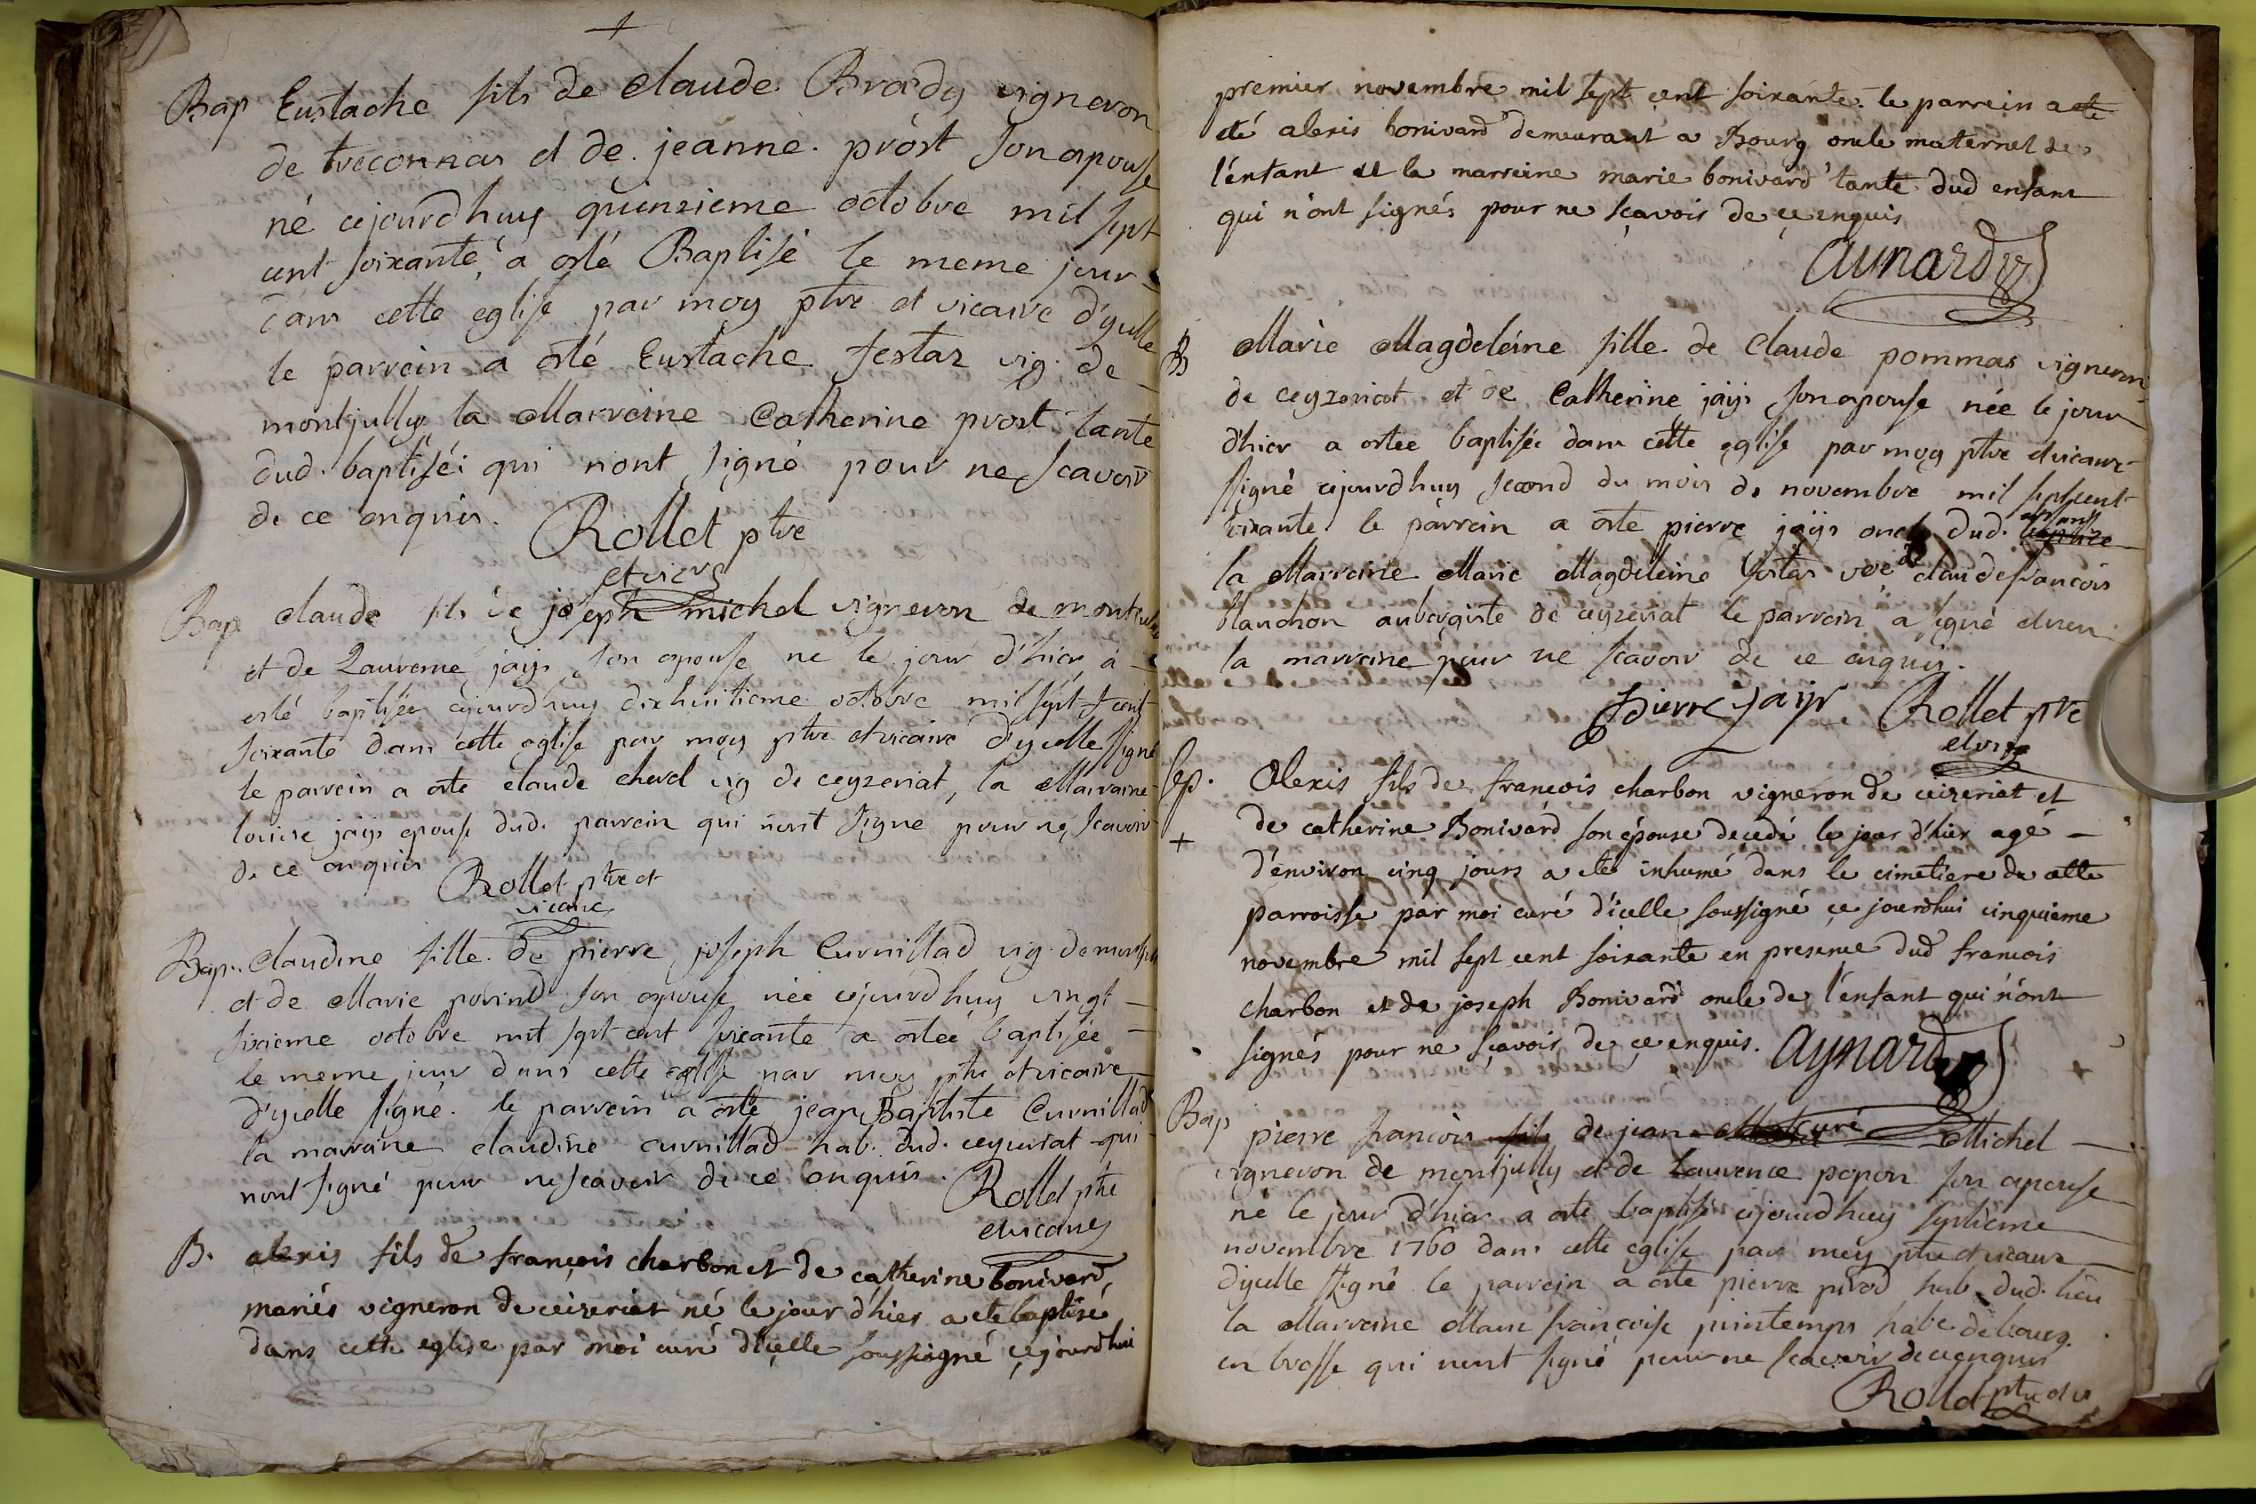 Bap Eustache fils de claude Brœdy vigneron
de treconnas et de jeanne prost son epouse
né cejourdhuy quinzieme octobre mil sept
cent soixante a esté Baptisé le meme jour
dans cette eglise par moy ptre et vicaire d'ycelle
le parrein a esté Eustache festaz vig. de
montjully la Marreine Catherine prost tante
dud. baptiséi qui n'ont signé pour ne scavoir
de ce enquis. Rollet ptre
et vicre
Bap claude fils de joseph michel vigneron de
et de Laurence jayr son epouse ne le jour d'hier a
esté baptisée cejourdhuy dixhuitieme octobre mil sept cent
soixante dans cette eglise par moy ptre et vicaire d'ycelle signé
le parrein a esté claude chevel vig de ceyzeriat, la Marraine
louise jayr epouse dud. parrein qui n'ont signé pour ne scavoir
de ce enquis Rollet ptre et
vicaire
Bap. claudine fille de pierre joseph Curnillad vig.
et de Marie son epouse née cejourdhuy vingt
sixieme octobre mil sept cent soixante a estee baptisée
le meme jour dans cette eglise par moy ptre et vicaire
d'ycelle signé. le parrein a esté jean Baptiste Curnillad
la marraine claudine curnillad hab. dud. ceyzeriat qui
n'ont signé pour ne scavoir de ce enquis. Rollet ptre
et vicaire
B. alexis fils de françois charbon et de catherine bonivard,
mariés vigneron de ceizeriat né le jour d'hier a eté baptisé
dans cette eglise par moi curé d'icelle soussigné cejourdhui
premier novembre mil sept cent soixante. le parrein a eté
eté alexis bonivard demeurant a Bourg oncle maternel de
l'enfant et la marreine marie bonivard tante dud enfant
qui n'ont signés pour ne sçavoir de ce enquis
Aynard
B Marie Magdeleine fille de Claude pommas vigneron
de ceyzeriat et de Catherine jayr son epouse née le jour
d'hier a estee baptisée dans cette eglise par moy ptre et vicaire
signé cejourdhuy second du mois de novembre mil septcent
soixante le parrein a esté pierre jayr oncle dud. enfant
la Marreine Marie Magdeleine festas vve de claude francois
blanchon aubergiste de ceyzeriat le parrein a signé et non
la marreine pour ne scavoir de ce enquis.
Pierre jayr Rollet ptre
et vicre
Sep. Alexis fils de françois charbon vigneron de ceizeriat et
de catherine Bonivard son épouse decedé le jour d'hier agé
+ d'environ cinq jours a eté inhumé dans le cimetiere de cette
parroisse par moi curé d'icelle soussigné ce jourdhui cinquieme
novembre mil sept cent soixante en presence dud françois
charbon et de joseph Bonivard oncle de l'enfant qui n'ont
signés pour ne sçavoir de ce enquis. Aynard
curé
Bap pierre francois fils de jean Michel
vigneron de montjully et de Laurence popon son epouse
né le jour d'hier a esté baptisé cejourdhuy septieme
novembre 1760 dans cette eglise par moy ptre et vicaire
d'ycelle signé le parrein a esté pierre hab. dud. lieu
la Marreine Marie françoise printemps habe de bourg
en bresse qui n'ont signé pour ne scavoir de ce enquis
Rollet ptre et vi